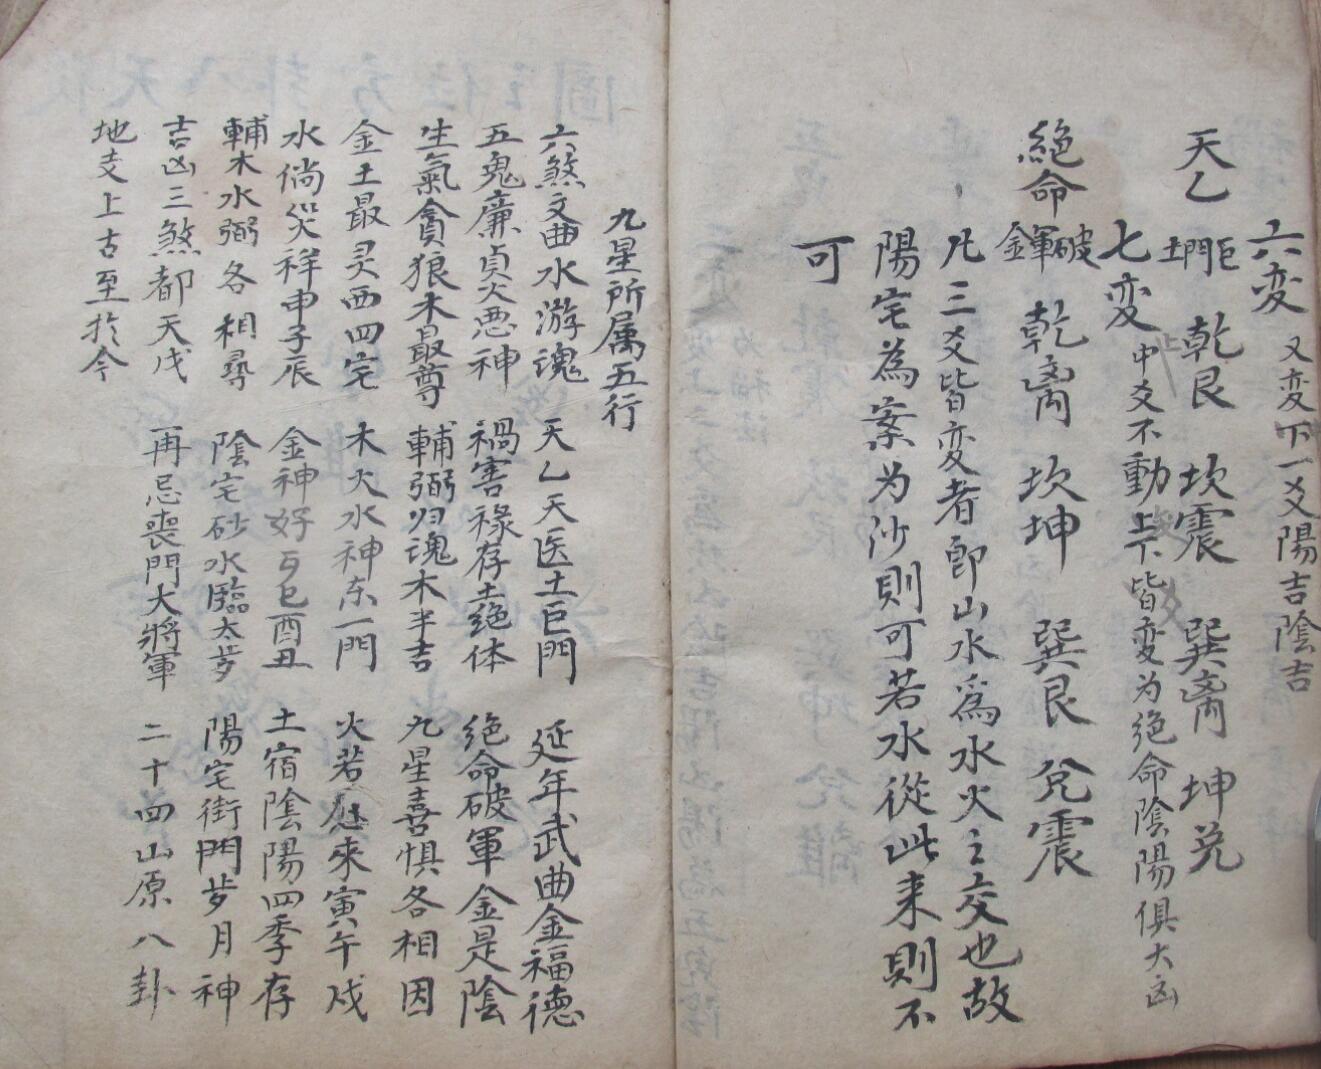 六変 又变下一爻陽吉陰吉
天乙 巨門土 乾艮 坎震 巽离 坤兑
七変 中爻不動上下皆变为绝命陰陽俱大凶
絶命 破軍金 乾离 坎坤 巽艮 兌震
凡三爻皆变者即山水為水火之交也故
陽宅為案为沙則可若水從此来則不
可
九星所属五行
六煞文曲水游魂 天乙天医土巨門 延年武曲金福德
五鬼廉貞火悪神 禍害祿存土绝体 绝命破軍金是陰
生氣貪狼木最尊 輔弼归魂木半吉 九星喜惧各相因
金土最灵西四宅 木火水神东一門 火若 來寅午戌
水倘災祥申子辰 金神好 巳酉丑 土宿陰陽四季存
輔木水弼各相尋 陰宅砂水臨太岁 陽宅街門岁月神
吉凶三煞都天戊 再忌喪門大將軍 二十四山原八卦
地支上古至於今